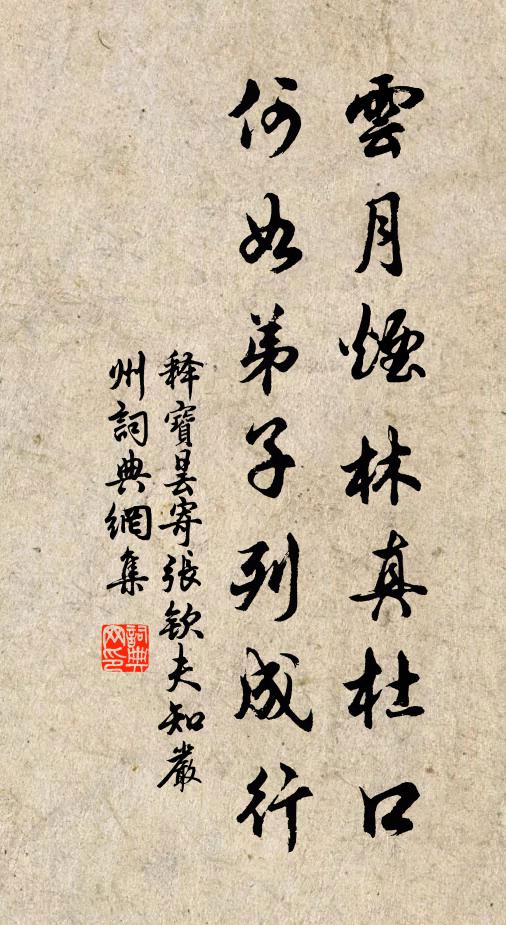 雲月煙林真杜口
何如弟子列成行
释寶曇寄張欽夫知嚴
州詞典網集
詞典
网印